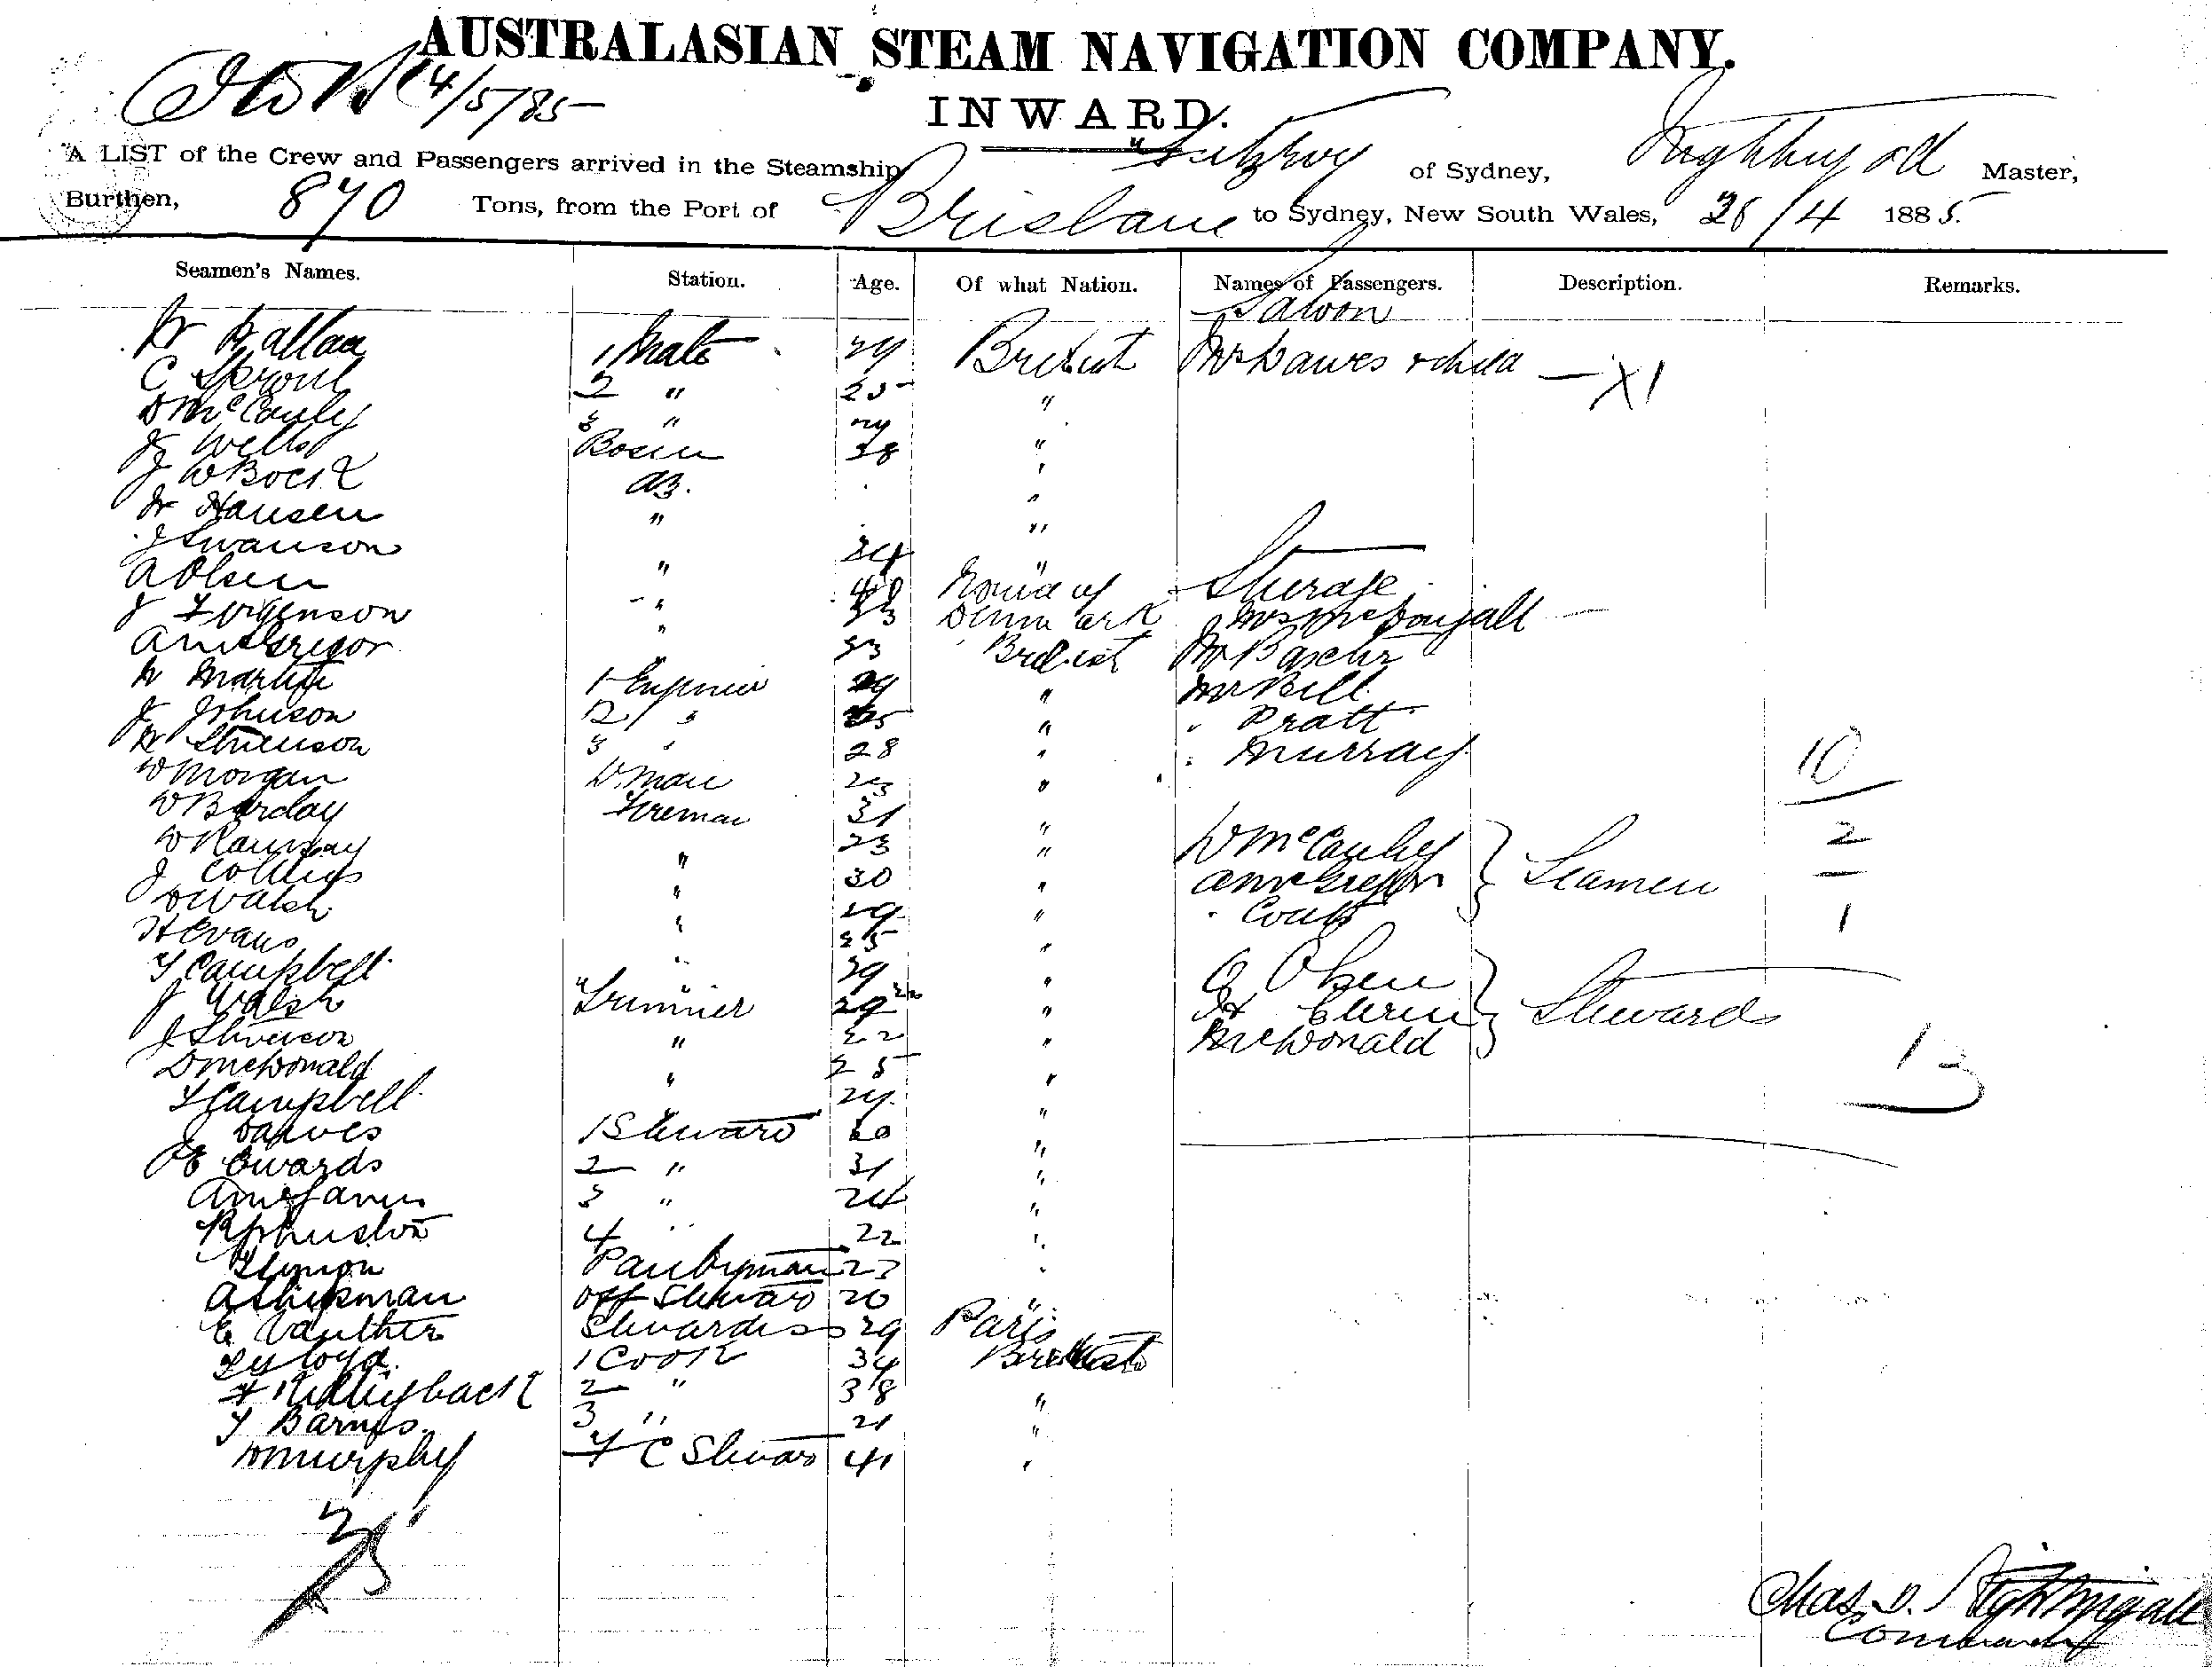 AUSTRALASIAN STEAM NAVIGATION COMPANY.
14/5/85
INWARD.
A LIST of the Crew and Passengers arrived in the Steamship "Fitzroy of Sydney, Master,
Burthen, 870 Tons, from the Port of Brisbane to Sydney, New South Wales, 26/4 1885.
Seamen's Names. Station. Age. Of what Nation. Names of Passengers. Description. Remarks.
Saloon
1 Mate 29 British Mrs Dawes + child — X1
C Sproul 2 " 25 "
D McCauley 3 "
J Wells Bosun 38 "
J W Bock AB. "
Hansen " "
J Swanson 24 "
A Olsen " 40 Steerage
J Jorgenson " 33 Denmark Mrs McDougall
A McGregor " 33 British Mr
Martin 1 Engineer 29 " Mr Bell
J Johnson 2 " " Pratt
Stevenson 3 " 28 " " Murray
10
W Morgan D. Man 23 "
W Barclay Fireman 31 "
W Ramsay " 23 " D McCauley 2
J Collins " 30 " A McGregor Seamen —
D Walsh " 29 " 1
H Evans " 25 "
T Campbell " 29 " Olsen
J Walsh Trimmer 29 " Stewards
J Stevenson " 22 " McDonald
13
D McDonald " 25 "
T Campbell " 24 "
J Dawes 1 Steward "
Edwards 2 " 31 "
3 " 24 "
R Johnston 4 " 22 "
Pantryman 23 "
A Shipman Off Steward 20 "
E Vauther Stewardess 29 Paris
Lloyd 1 Cook 34 British
2 " 38 "
T Barnes 3 " 21 "
D Murphy F C Steward 41 "
Chas. D. Nightingale
Commander